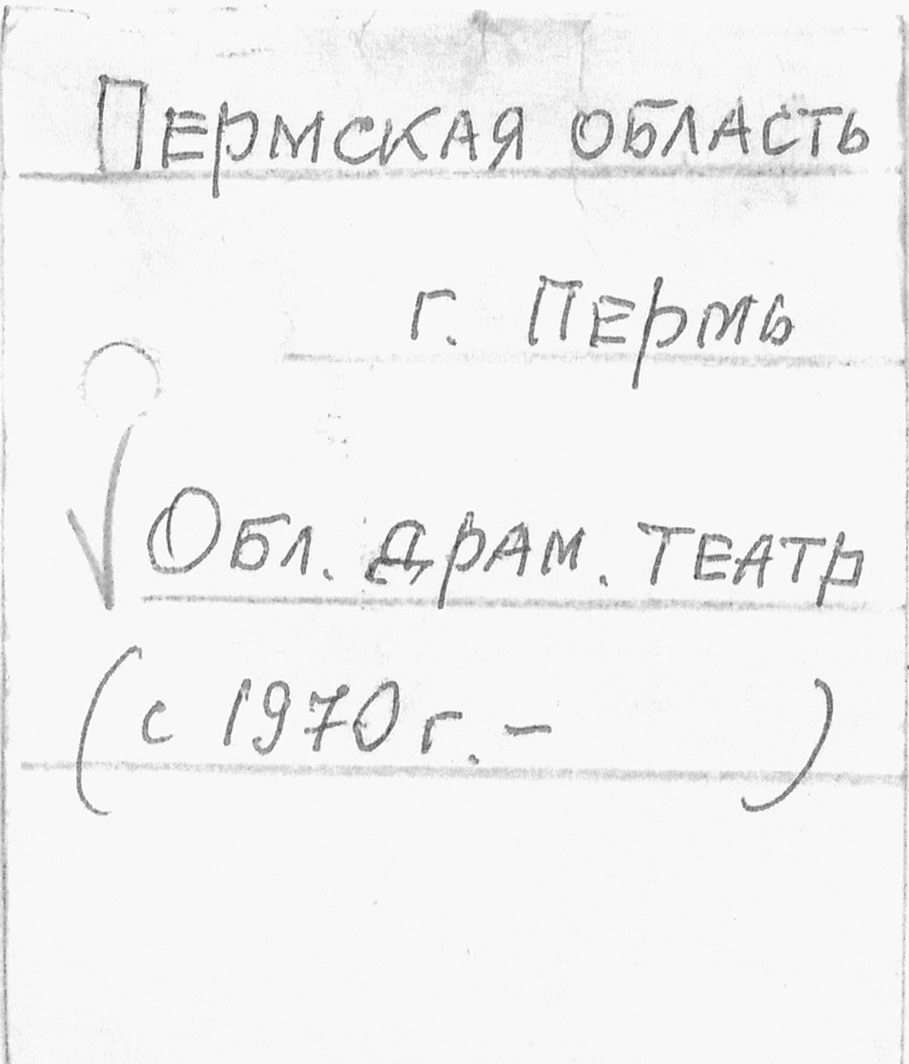 Пермская область
г. Пермь
√ Обл. драм. театр
(с 1970 г. – )